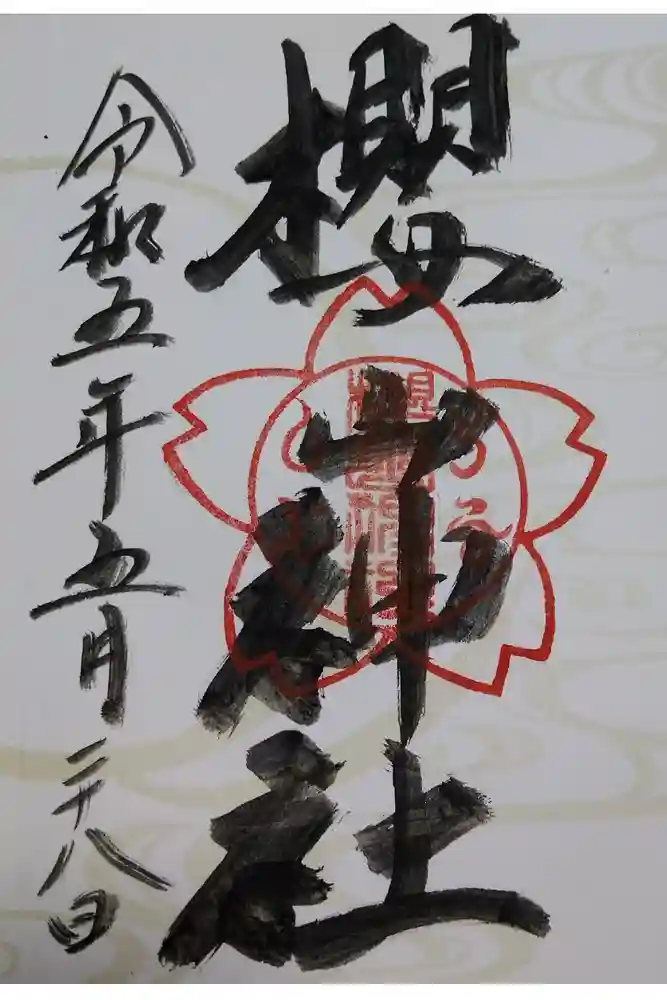 櫻山神社
令和五年五月二十八日